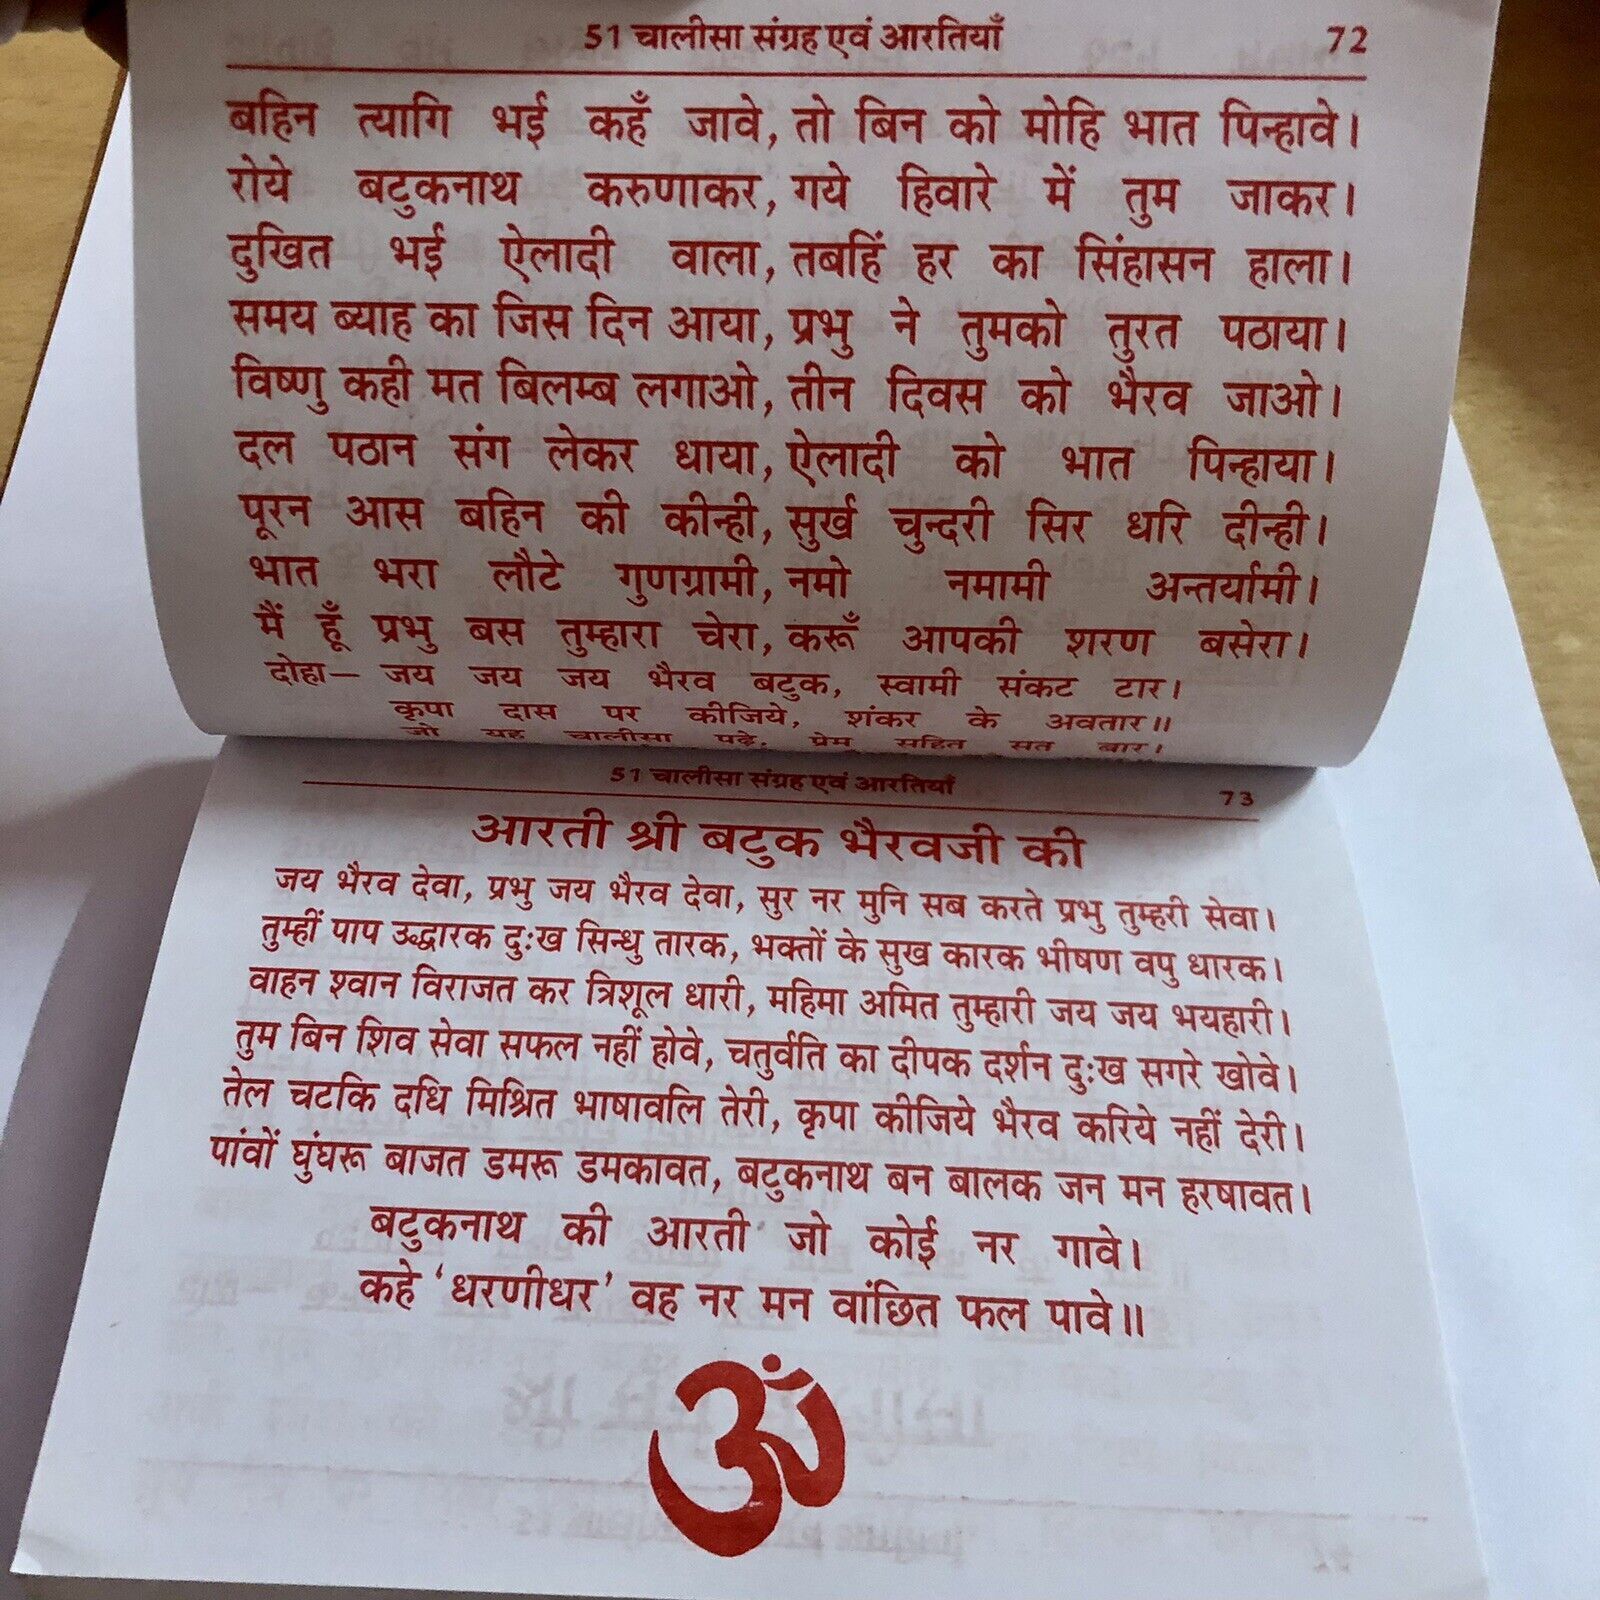 51 चालीसा संग्रह एवं आरतियाँ 72
बहिन त्यागि भई कहँ जावे, तो बिन को मोहि भात पिन्हावे।
रोये बटुकनाथ करुणाकर, गये हिवारे में तुम जाकर।
दुखित भई ऐलादी वाला, तबहिं हर का सिंहासन हाला।
समय ब्याह का जिस दिन आया, प्रभु ने तुमको तुरत पठाया।
विष्णु कही मत बिलम्ब लगाओ, तीन दिवस को भैरव जाओ।
दल पठान संग लेकर धाया, ऐलादी को भात पिन्हाया।
पूरन आस बहिन की कीन्ही, सुर्ख चुन्दरी सिर धरि दीन्ही।
भात भरा लौटे गुणग्रामी, नमो नमामी अन्तर्यामी।
मैं हूँ प्रभु बस तुम्हारा चेरा, करूँ आपकी शरण बसेरा।
दोहा— जय जय जय भैरव बटुक, स्वामी संकट टार।
कृपा दास पर कीजिये, शंकर के अवतार॥
जो यह चालीसा पढ़े, प्रेम सहित सत बार।
51 चालीसा संग्रह एवं आरतियाँ 73
आरती श्री बटुक भैरवजी की
जय भैरव देवा, प्रभु जय भैरव देवा, सुर नर मुनि सब करते प्रभु तुम्हरी सेवा।
तुम्हीं पाप उद्धारक दुःख सिन्धु तारक, भक्तों के सुख कारक भीषण वपु धारक।
वाहन श्वान विराजत कर त्रिशूल धारी, महिमा अमित तुम्हारी जय जय भयहारी।
तुम बिन शिव सेवा सफल नहीं होवे, चतुर्वति का दीपक दर्शन दुःख सगरे खोवे।
तेल चटकि दधि मिश्रित भाषावलि तेरी, कृपा कीजिये भैरव करिये नहीं देरी।
पांवों घुंघरू बाजत डमरू डमकावत, बटुकनाथ बन बालक जन मन हरषावत।
बटुकनाथ की आरती जो कोई नर गावे।
कहे ‘धरणीधर’ वह नर मन वांछित फल पावे॥
ॐ